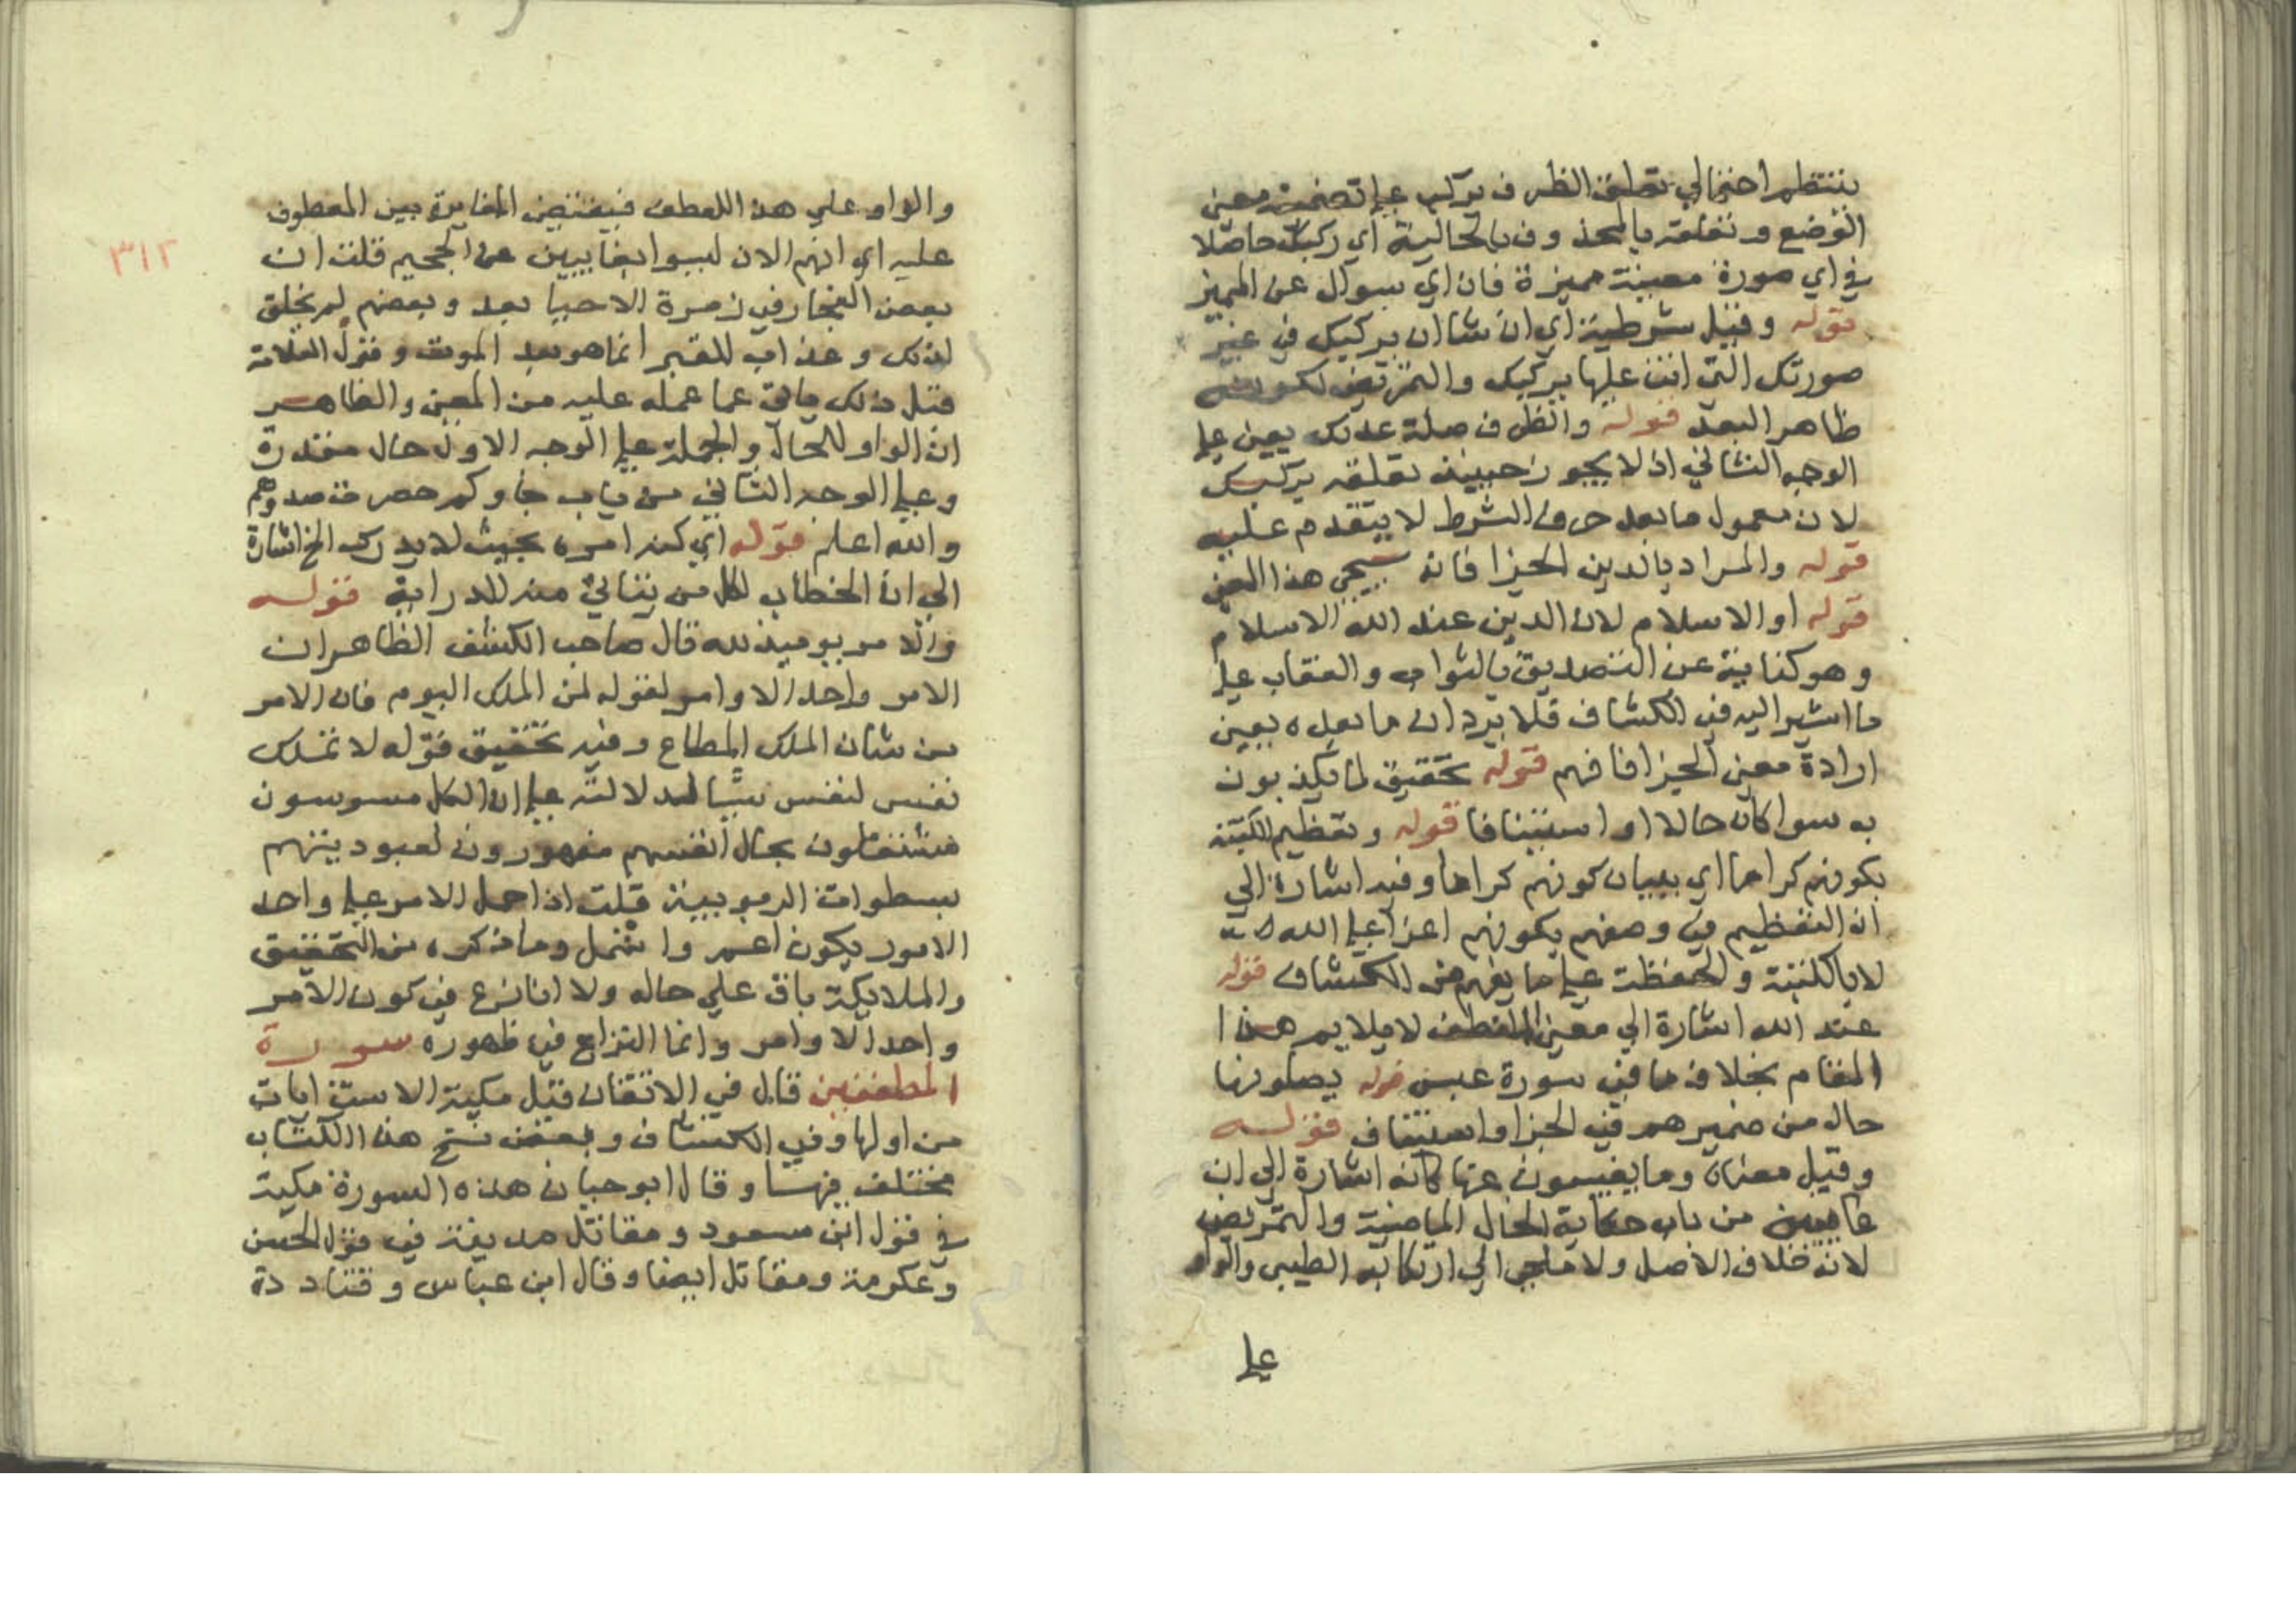 ينتظم احتمالي تعلق الظرف بركب علي تضمنه معنى
الوضع وتعلقه بالمحذوف بالحالية اي ركبك حاصلا
في اي صورة معينة مميزة فان اي سوال عن المميز
قوله وقيل شرطية اي ان شاان يركبك في غير
صورتك التي انت عليها يركبك والتمريض لكونه
ظاهر البعد قوله والظرف صلة عدلك يعين علي
الوجه الثاني اذ لا يجوز حينئذ تعلقه بركبك
لان معمول ما بعد حرف الشرط لا يتقدم عليه
قوله والمراد بالدين الجزا فانه سيجي هذا المعنى
قوله او الاسلام لان الدين عند الله الاسلام
وهو كناية عن التصديق بالثواب والعقاب علي
ما اشير اليه في الكشاف فلا يرد ان ما بعده يعين
ارادة معنى الجزا فافهم قوله تحقيق لما يكذبون
به سوا كان حالا او استينافا قوله وتعظيم الكتبة
بكونهم كراما اي ببيان كونهم كراما وفيه اشارة الي
ان التعظيم في وصفهم بكونهم اعزا علي الله
لا بالكتبة والحفظة علي ما يفهم من الكشاف قوله
عند الله اشارة الي معنى التعطف لا يلايم هذا
المقام بخلاف ما في سورة عبس قوله يصلونها
حال من ضميرهم في الخبر او استيناف قوله
وقيل معناه وما يغيبون عنها كانه اشارة الي ان
غايبين من باب حكاية الحال الماضية والتمريض
لانه خلاف الاصل ولا ملجي الي ارتكابه الطيبي والواو
علي
٣١٢
والواو علي هذا للعطف فيقتضي المغايرة بين المعطوف
عليه اي انهم الان ليسوا بغايبين عن الجحيم قلت ان
بعض الفجار في زمرة الاحيا بعد وبعضهم لم يخلق
لذلك وعذاب القبر انما هو بعد الموت وقول العلامة
قبل ذلك عما عمله عليه من المعنى والظاهر
ان الواو للحال والجملة علي الوجه الاول حال مقدرة
وعلي الوجه الثاني من باب جاوكم حصرت صدورهم
والله اعلم قوله اي كنه امره بحيث لا يدرك الخ اشارة
الي ان الخطاب لكل من يتاتي منه للدراية قوله
والامر يوميذ لله قال صاحب الكشف الظاهر ان
الامر واحد الاوامر لقوله لمن الملك اليوم فان الامر
من شان الملك المطاع وفيه تحقيق قوله لا تملك
نفس لنفس شيا لدلالته علي ان الكل مسوسون
مشتغلون بحال انفسهم مقهورون لعبوديتهم
بسطوات الربوبية قلت اذا حمل الامر علي واحد
الامور يكون اعم واشمل وما ذكره من التحقيق
والملايكة باق علي حاله ولا انازع في كون الامر
واحد الاوامر وانما النزاع في ظهوره سورة
المطففين قال في الاتقان قيل مكية الا ست ايات
من اولها وفي الكشاف وبعض نسخ هذا الكتاب
مختلف فيها وقال ابو حيان هذه السورة مكية
في قول ابن مسعود ومقاتل مدينة في قول الحسن
وعكرمة ومقاتل ايضا وقال ابن عباس وقتادة